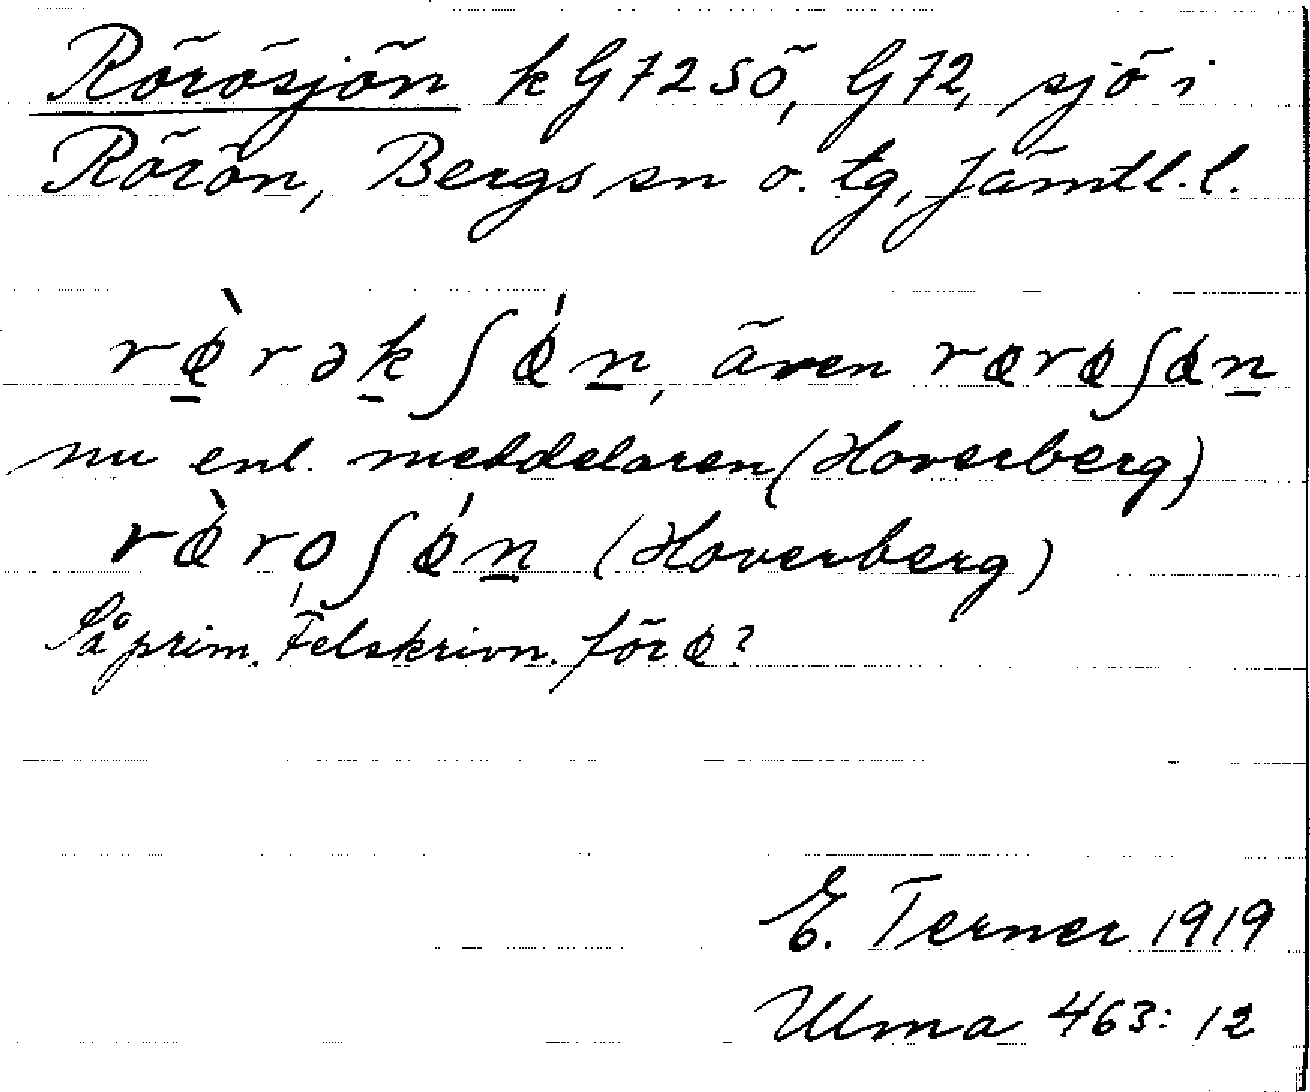 Rörösjön k G72SÖ, G72, sjö i
Rörön, Bergs sn o. tg, Jämtl. l.
rø̀rəkʃøń, även rørøʃøn
nu enl. meddelaren (Hoverberg)
rø̀ro̩ʃøń (Hoverberg)
Så prim. Felskrivn. för ø?
E. Terner 1919
Ulma 463:12